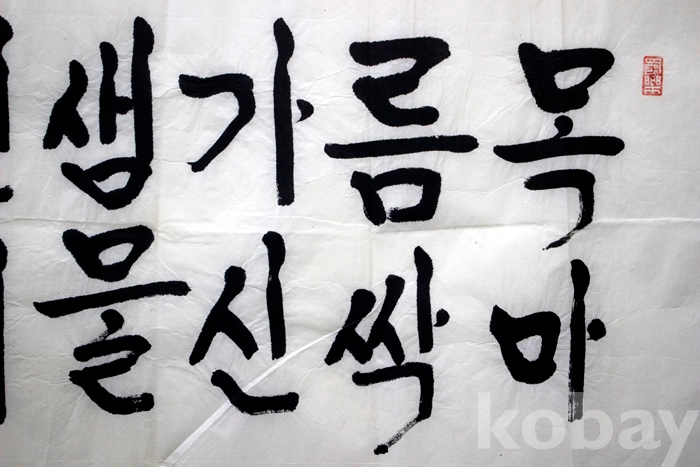 목마
름싹
가신
샘물
kobay